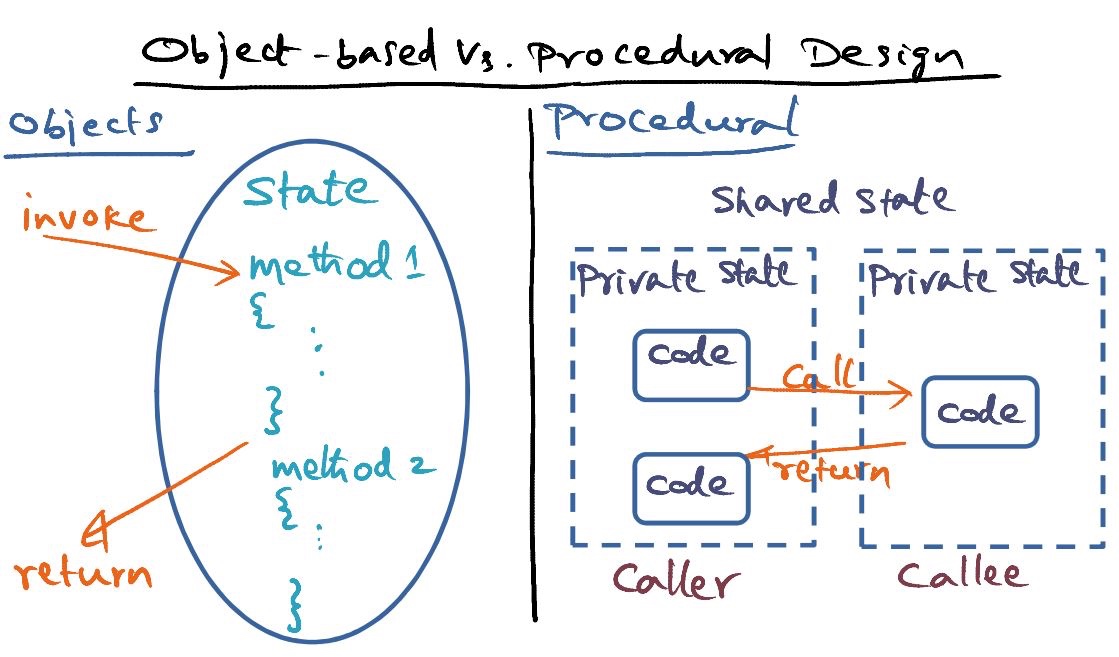 Object-based Vs. Procedural Design
Objects
invoke
State
method 1
{
⋮
}
method 2
{
⋮
}
return
Procedural
Shared State
Private State
code
call
return
code
Caller
Private State
code
Callee